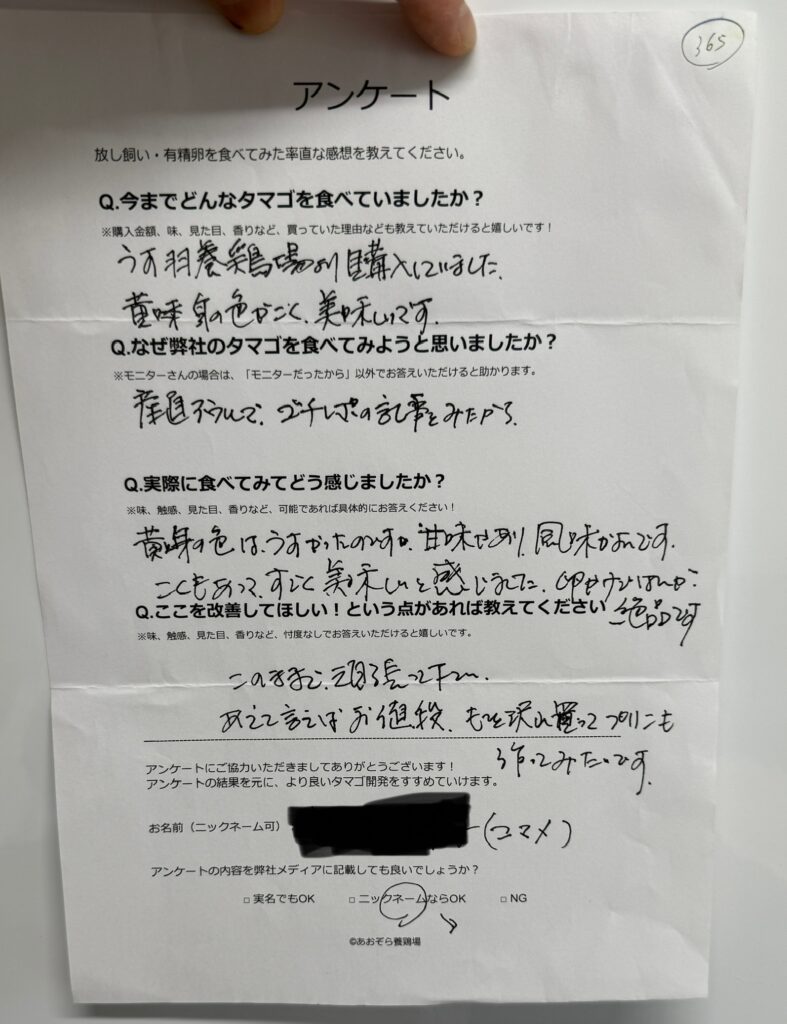 365
アンケート
放し飼い・有精卵を食べてみた率直な感想を教えてください。
Q.今までどんなタマゴを食べていましたか？
※購入金額、味、見た目、香りなど、買っていた理由なども教えていただけると嬉しいです！
うす羽養鶏場より購入していました。
黄味身の色がこく、美味しいです。
Q.なぜ弊社のタマゴを食べてみようと思いましたか？
※モニターさんの場合は、「モニターだったから」以外でお答えいただけると助かります。
産直で、ゴチレポの記事をみたから
Q.実際に食べてみてどう感じましたか？
※味、触感、見た目、香りなど、可能であれば具体的にお答えください！
黄身の色は、うすかったのですが、甘味があり、風味がよいです。
こくもあって、すごく美味しいと感じました。卵かけごはんが
絶品です
Q.ここを改善してほしい！という点があれば教えてください
※味、触感、見た目、香りなど、忖度なしでお答えいただけると嬉しいです。
このままで、頑張って下さい。
あえて言えばお値段、もっと沢山買ってプリンも
作ってみたいです。
アンケートにご協力いただきましてありがとうございます！
アンケートの結果を元に、より良いタマゴ開発をすすめていけます。
お名前（ニックネーム可）(コマメ)
アンケートの内容を弊社メディアに記載しても良いでしょうか？
□ 実名でもOK □ ニックネームならOK □ NG
©あおぞら養鶏場